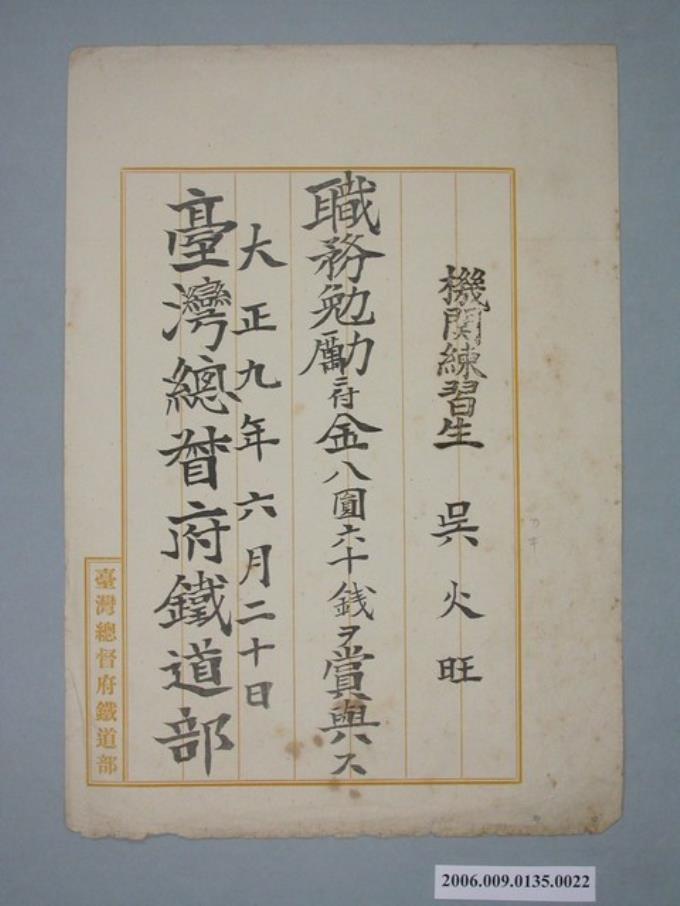 機関練習生 呉火旺
職務勉励ニ付金八圓六十銭ヲ賞與ス
大正九年六月二十日
臺灣總督府鐵道部
臺灣總督府鐵道部
2006.009.0135.0022